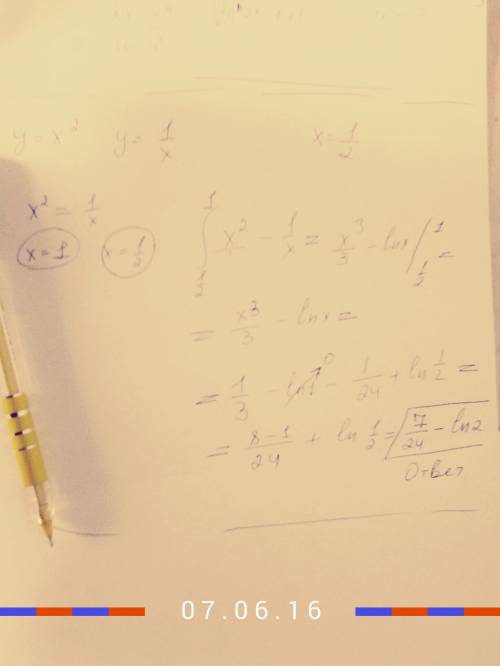 y = x² y = 1/x x = 1/2
x² = 1/x
x = 1 x = 1/2
∫_{1/2}^{1} x² - 1/x = x³/3 - ln x /_{1/2}^{1} =
= x³/3 - ln x =
= 1/3 - ln 1 0 - 1/24 + ln 1/2 =
= 8-1/24 + ln 1/2 = 7/24 - ln 2
Ответ
07.06.16